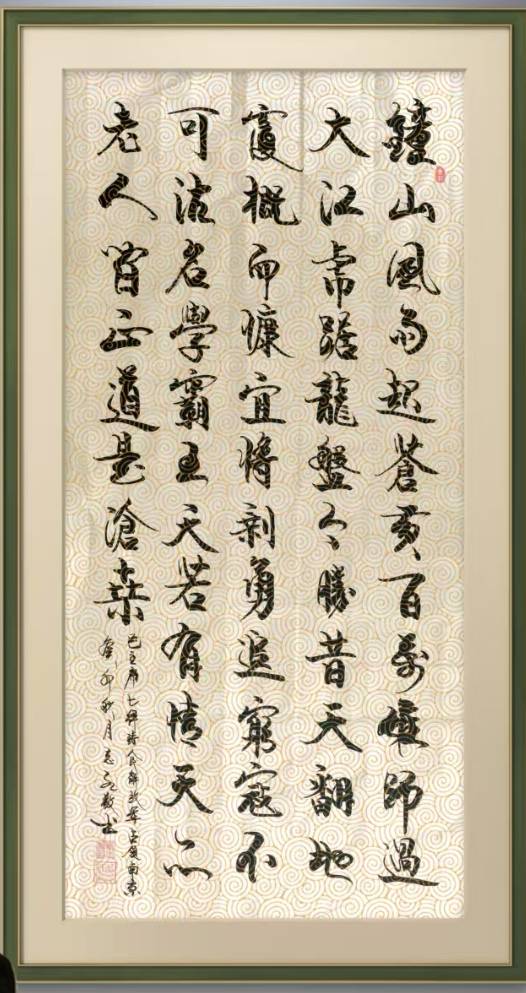 鐘山風雨起蒼黃百萬雄師過
大江虎踞龍盤今勝昔天翻地
覆概而慷宜將剩勇追窮寇不
可沽名學霸王天若有情天亦
老人間正道是滄桑
毛主席七律詩人民解放軍占領南京
癸卯秋月